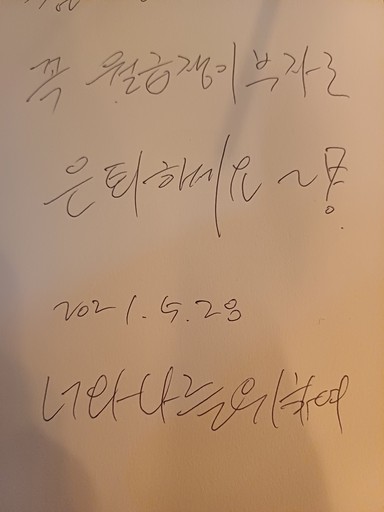 꼭 월급쟁이 부자로
은퇴하세요~^^
2021.5.28
너와나를위하여